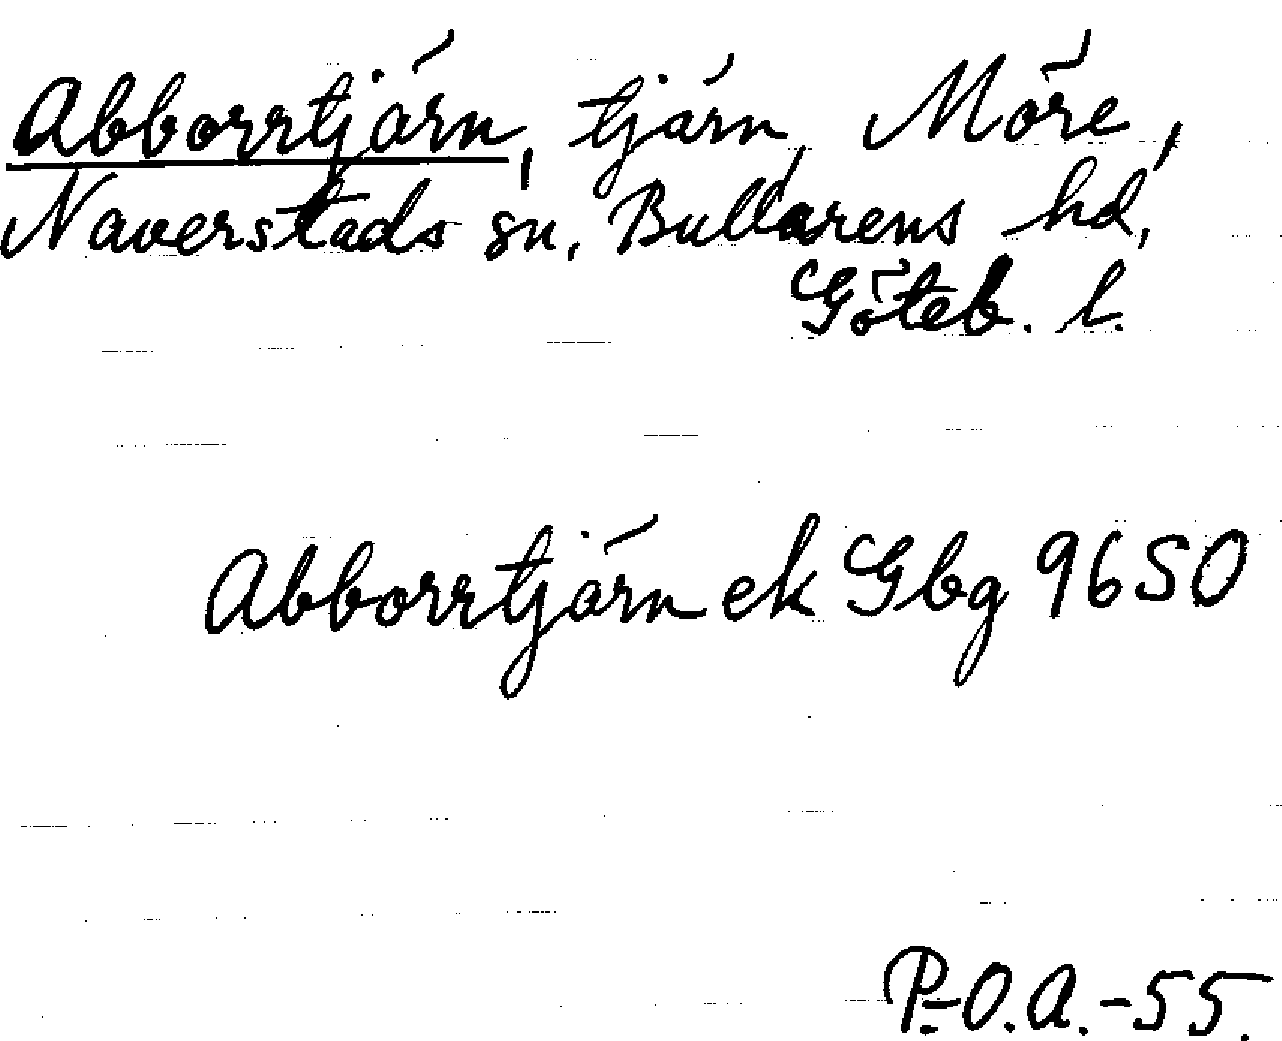 Abborrtjärn, tjärn, Möre,
Naverstads sn, Bullarens hd,
Göteb. l.
Abborrtjärn ek Gbg 9650
P.-O.A.-55.